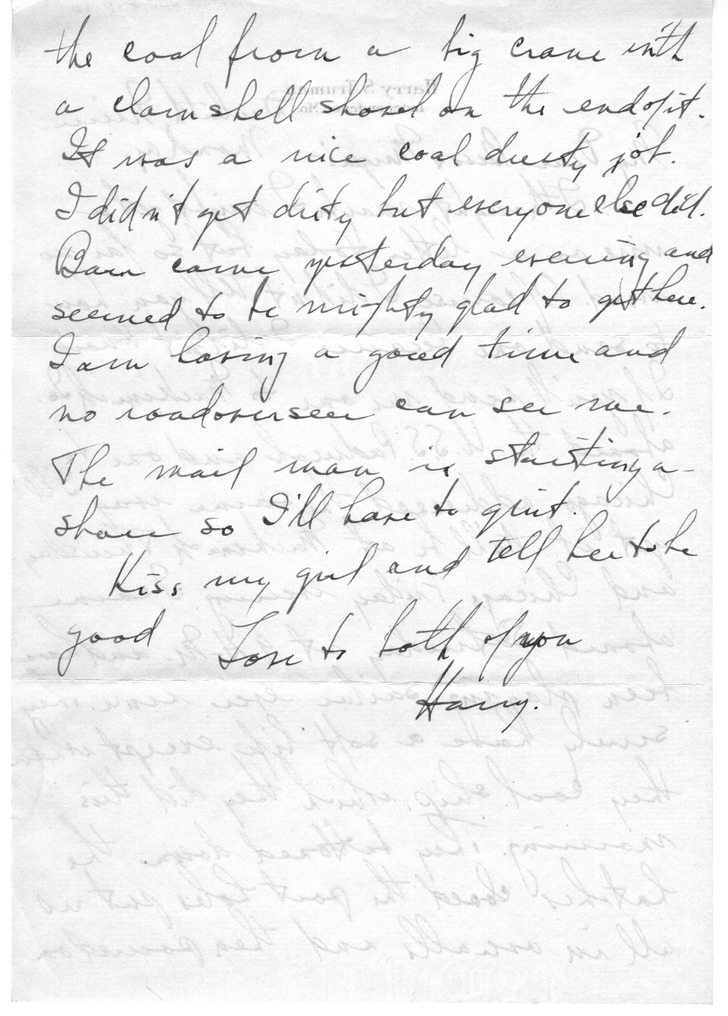 the coal from a big crane with
a clam shell shovel on the end of it.
It was a nice coal dusty job.
I didn't get dirty but everyone else did.
Barr came yesterday evening and
seemed to be mighty glad to get here.
I am having a good time and
no road overseer can see me.
The mail man is starting a-
shore so I'll have to quit.
Kiss my girl and tell her to be
good Love to both of you
Harry.